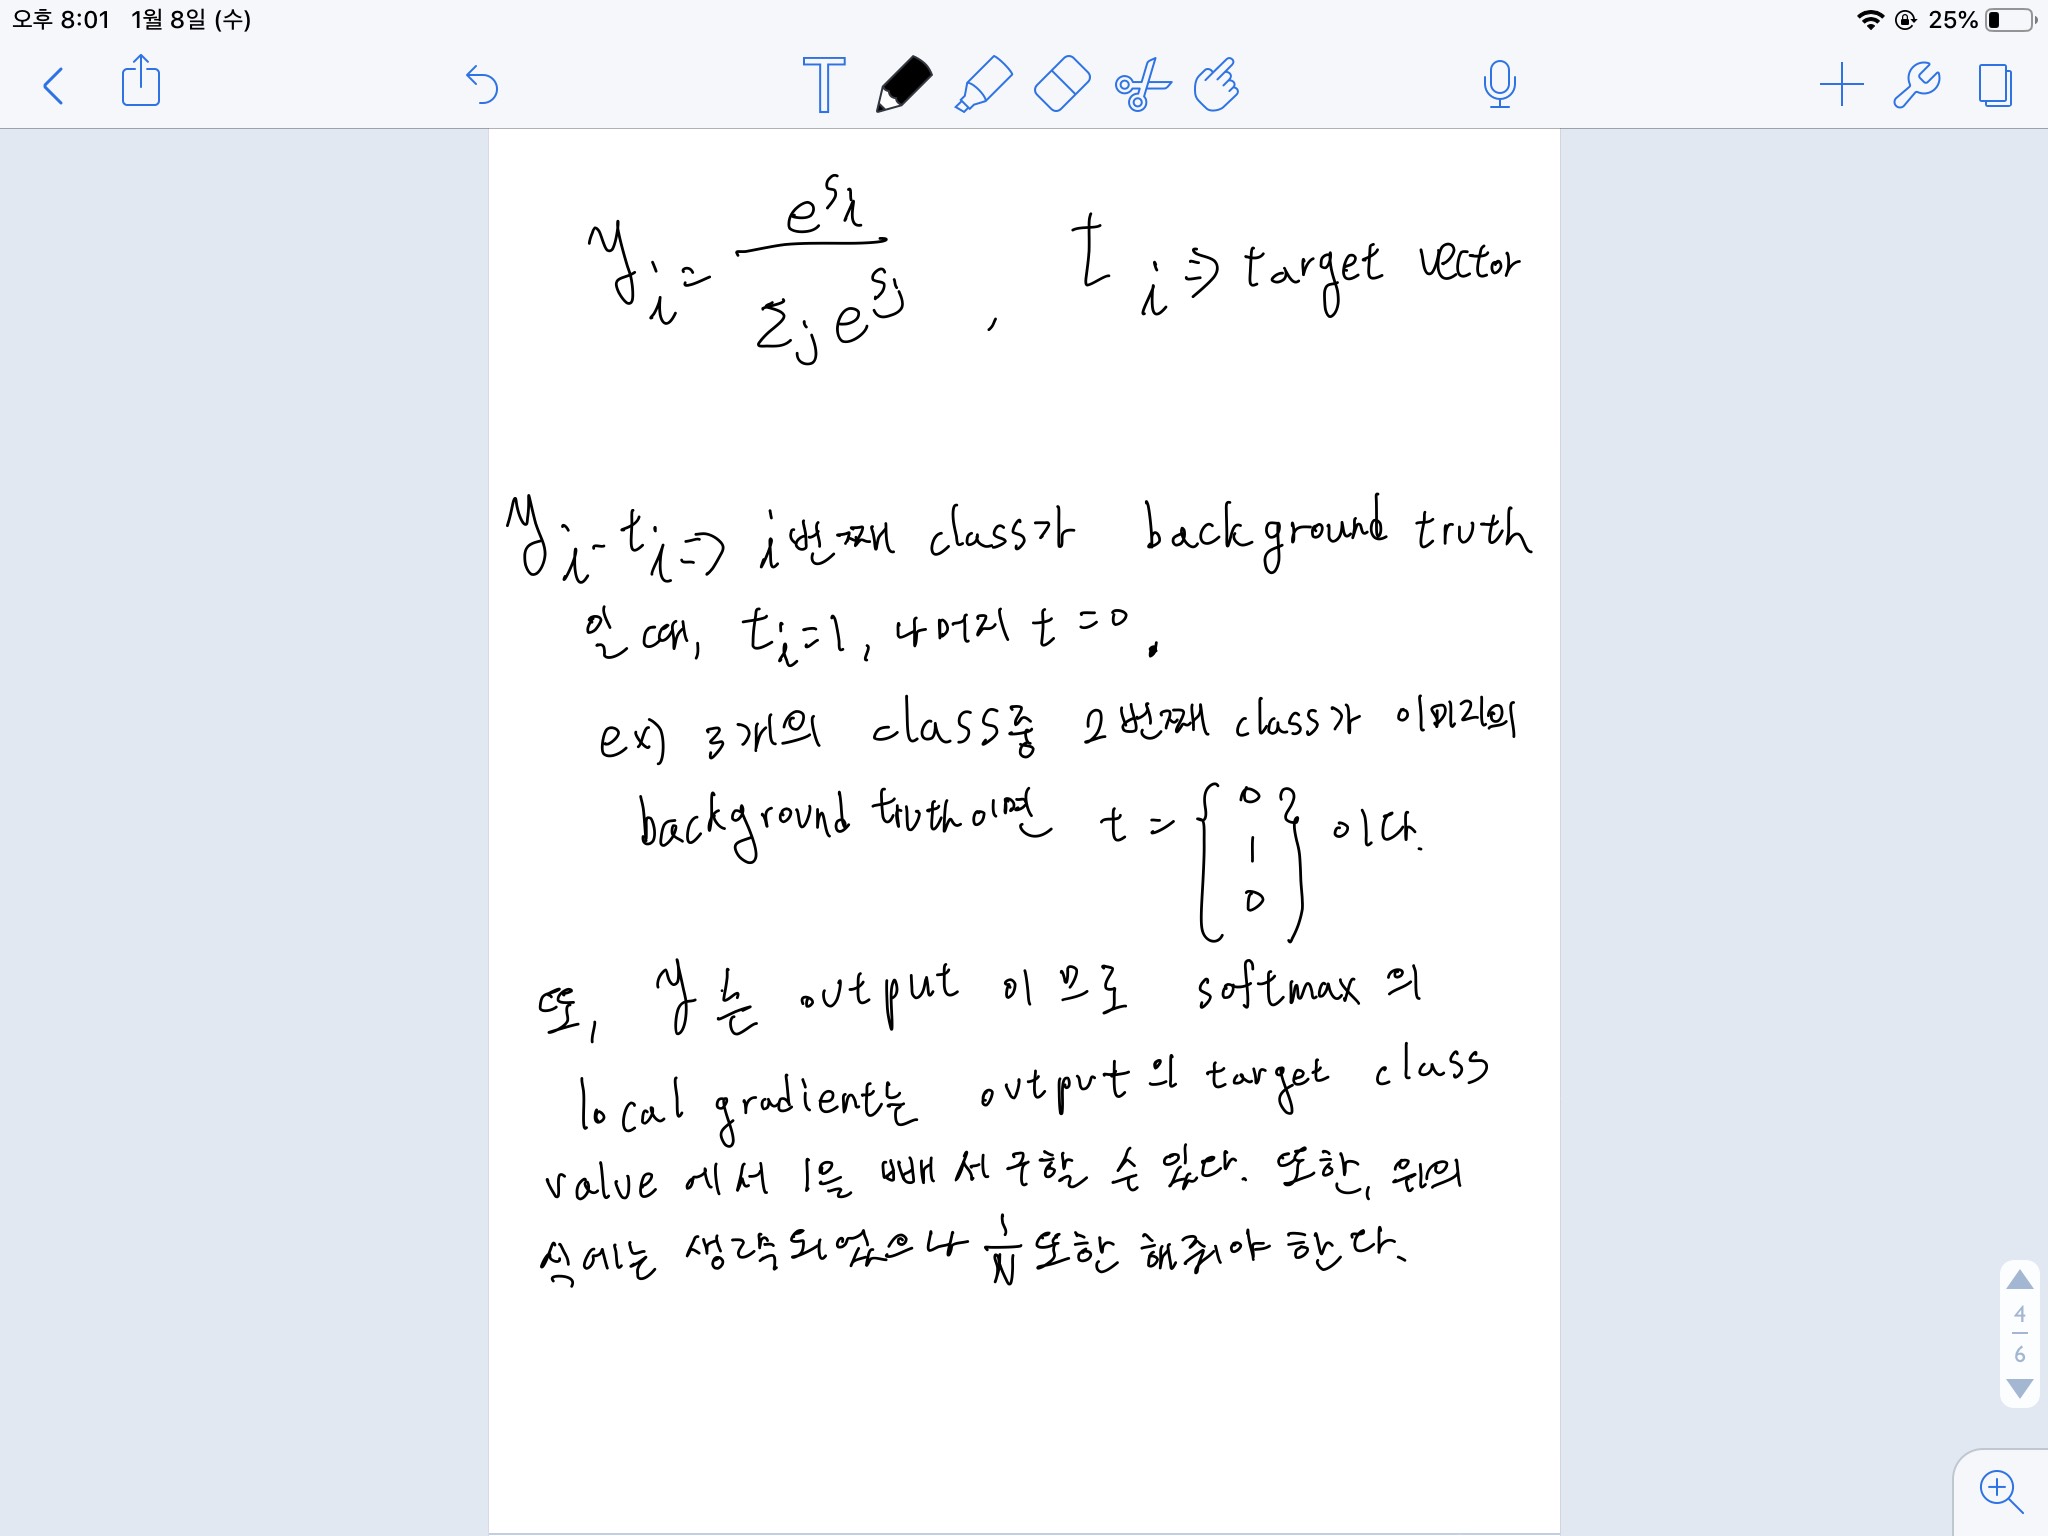 오후 8:01 1월 8일 (수) 25%
T
y_i = e^{s_i} / Σ_j e^{s_j} , t_i ⇒ target vector
y_i - t_i ⇒ i번째 class가 background truth
일 때, t_i = 1, 나머지 t = 0.
ex) 3개의 class중 2번째 class가 이미지의
background truth이면 t = {0 1 0} 이다.
또, y는 output 이므로 softmax 의
local gradient는 output의 target class
value 에서 1을 빼서 구할 수 있다. 또한, 위의
식에는 생략되었으나 1/N 또한 해줘야 한다.
4
6